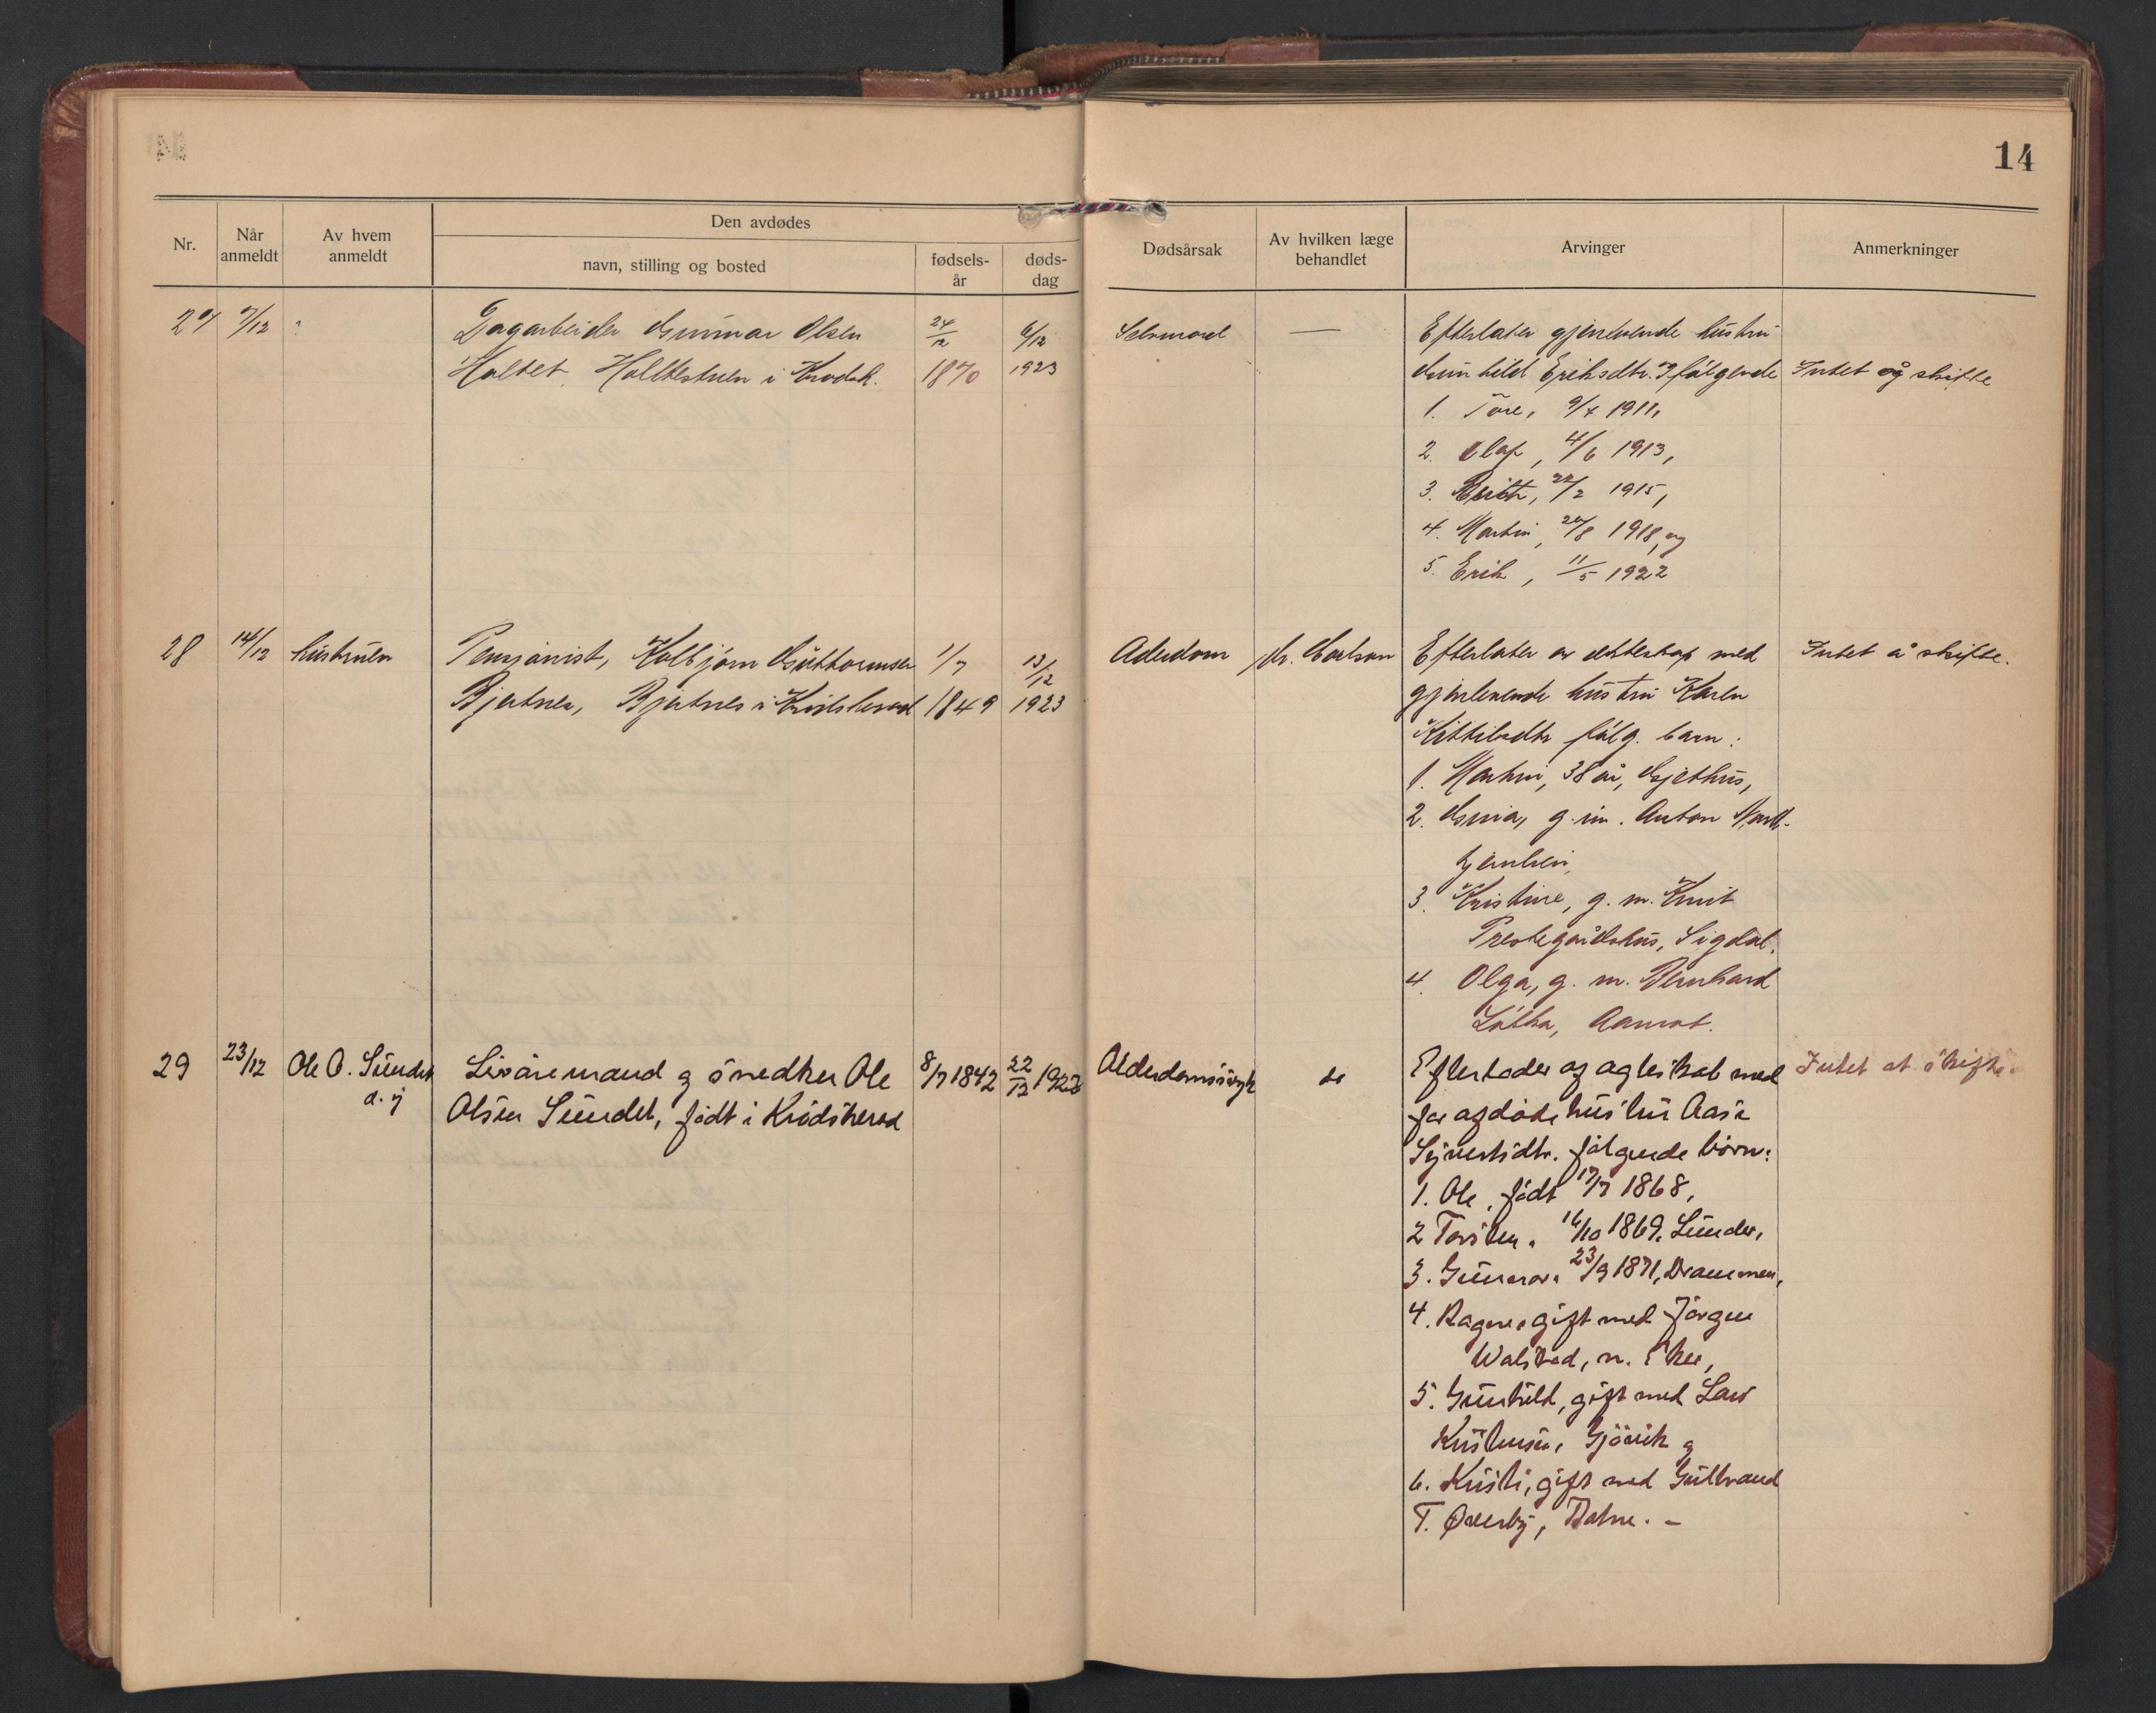 14
Nr.
Når anmeldt
Av hvem anmeldt
Den avdødes
navn, stilling og bosted
fødsels-
år
døds-
dag
Dødsårsak
Av hvilken læge
behandlet
Arvinger
Anmerkninger
27 7/12
Dagarbeider Gunnar Olsen
Holtet, i Krødsh.
24/12
1870
6/12
1923
Selvmord
—
Efterlater gjenlevende hustru
Gunhild Eriksdtr. følgende
1. Tore, 9/4 1911,
2. Olaf, 4/6 1913,
3. 22/2 1915,
4. Martin, 1918, og
5. Erik, 11/5 1922
Intet og skifte
28 14/12 hustruen
Pensjonist, Kolbjørn Guttormsen
Bjertnes, Bjertnes i Krødsherad
1/7
1849
13/12
1923
Alderdom
dr.
Efterlater av ekteskap med
gjenlevende hustru Karen
Kittilsdtr følg. barn:
1. Martin, 38 år, Gjethus,
2. g. m. Anton
3. Kristine, g. m. Knut
Prestegårdshus, Sigdal,
4. Olga, g. m. Bernhard
Aamot.
Intet å skifte.
29 23/12 Ole O. Sundet
d. y
Livøremand og snedker Ole
Olsen Sundet, født i Krødsherad
8/7 1842
22/12 1923
Alderdomssvagh
do
Efterlader af ægteskab med
før afdøde hustru Aase
Syvertsdtr. følgende børn:
1. Ole, født 17/7 1868,
2 Torsten, 16/10 1869, Lunder,
3. Gunnar, 23/9 1871, Drammen,
4. Ragne, gift med Jørgen
Walstad, n. Eker,
5. Gunhild, gift med Lars
Kristensen, Gjøvik og
6. Kristi, gift med Gulbrand
T. Øverby,
Intet at skifte.